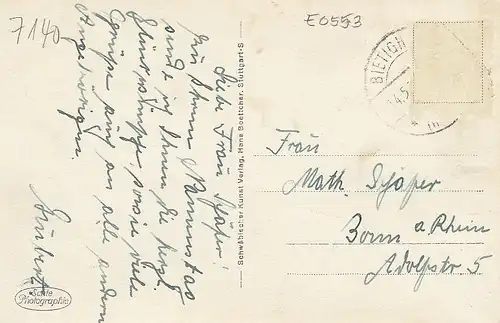 7140
E0553
BIETIGH
14.5
Liebe Frau Schäfer!
Zu Ihrem Namenstag
sende ich Ihnen die herzl.
Glückwünsche sowie viele
Grüße auch an alle andern
Angehörigen.
Echte
Photographie
Schwäbischer Kunst Verlag, Hans Boettcher, Stuttgart-S
Frau
Math. Schäfer
Bonn a Rhein
Adolfstr. 5